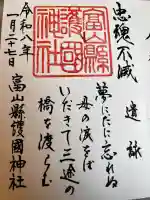 忠魂不滅
遺詠
夢にだに忘れぬ
母の涙をば
いだきて三途の
橋を渡らむ
富山縣護國神社
令和二年
一月二十七日
富山縣護國神社